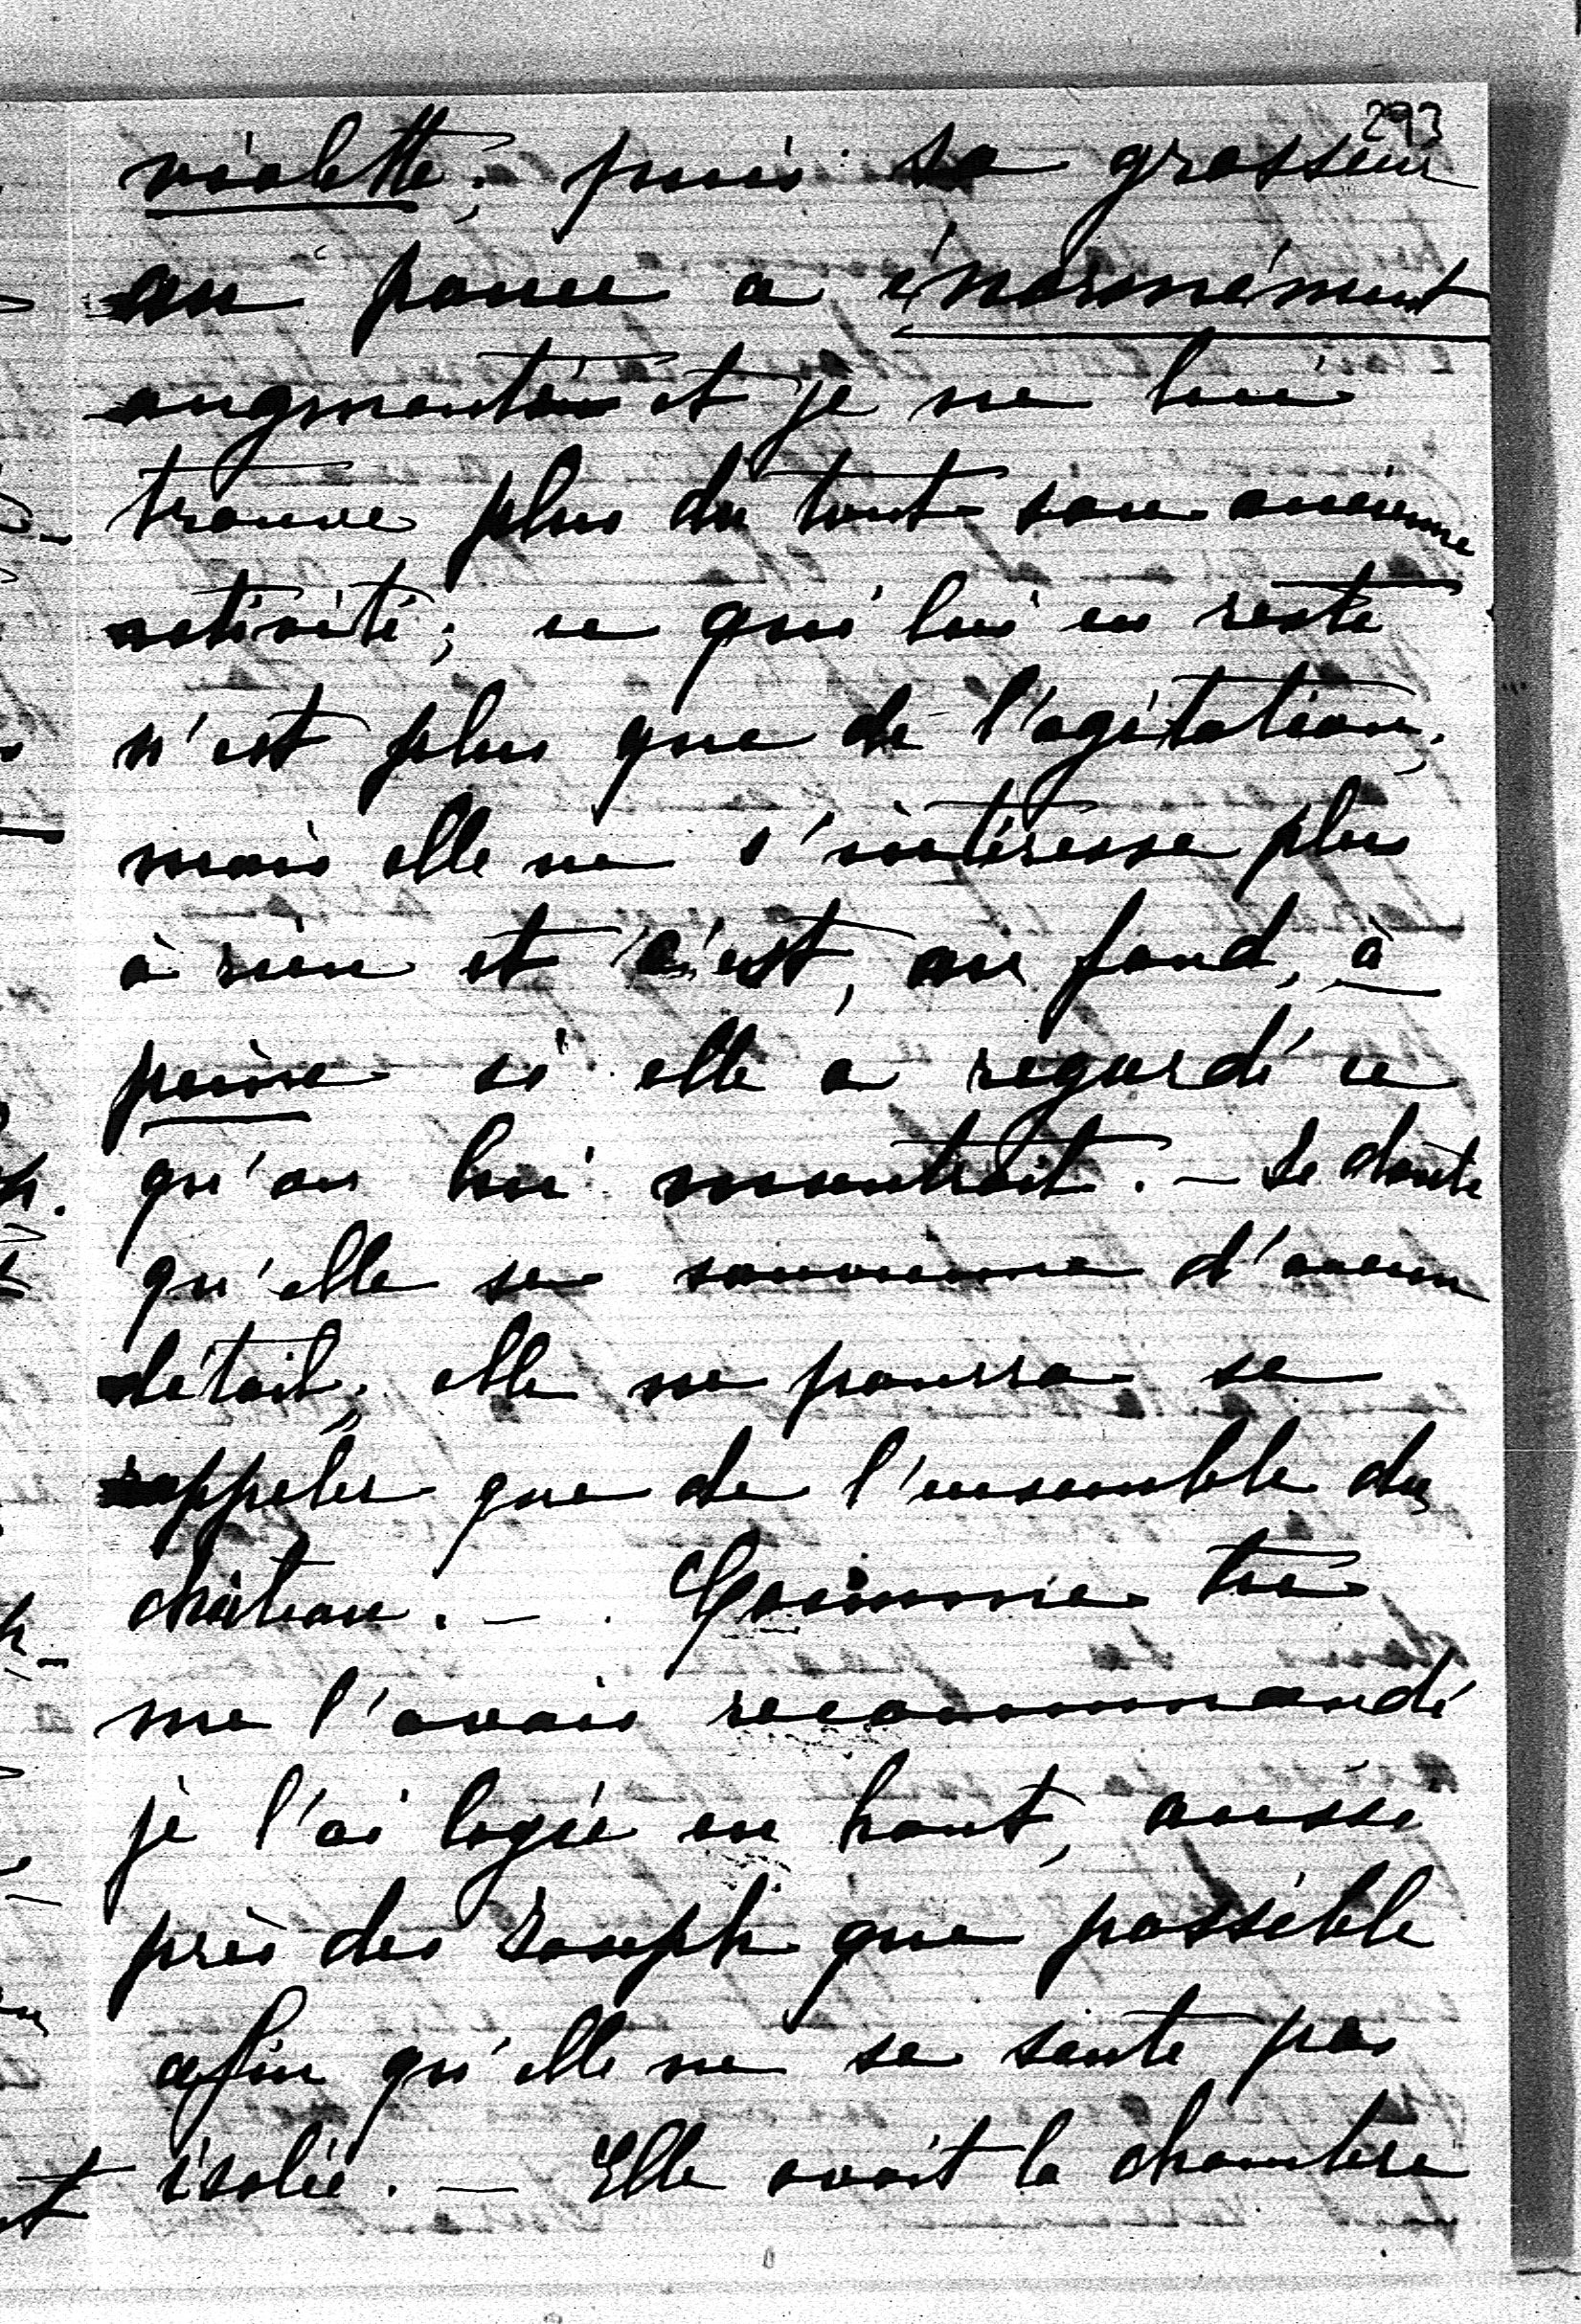 293
violette; puis sa grosseur
au pouce a énormément
augmenté et je ne lui
trouve plus du tout son ancienne
activité; ce qui lui en reste
n'est plus que de l'agitation,
mais elle ne s'intéresse plus
à rien et c'est, au fond, à
peine si elle a regardé ce
qu'on lui montrait. - Je doute
qu'elle se souvienne d'aucun
détail; elle ne pourra se
rappeler que de l'ensemble du
château. - Comme tu
me l'avais recommandé
je l'ai logée en haut, aussi
près des Joseph que possible
afin qu'elle ne se sente pas
isolée. - Elle avait la chambre